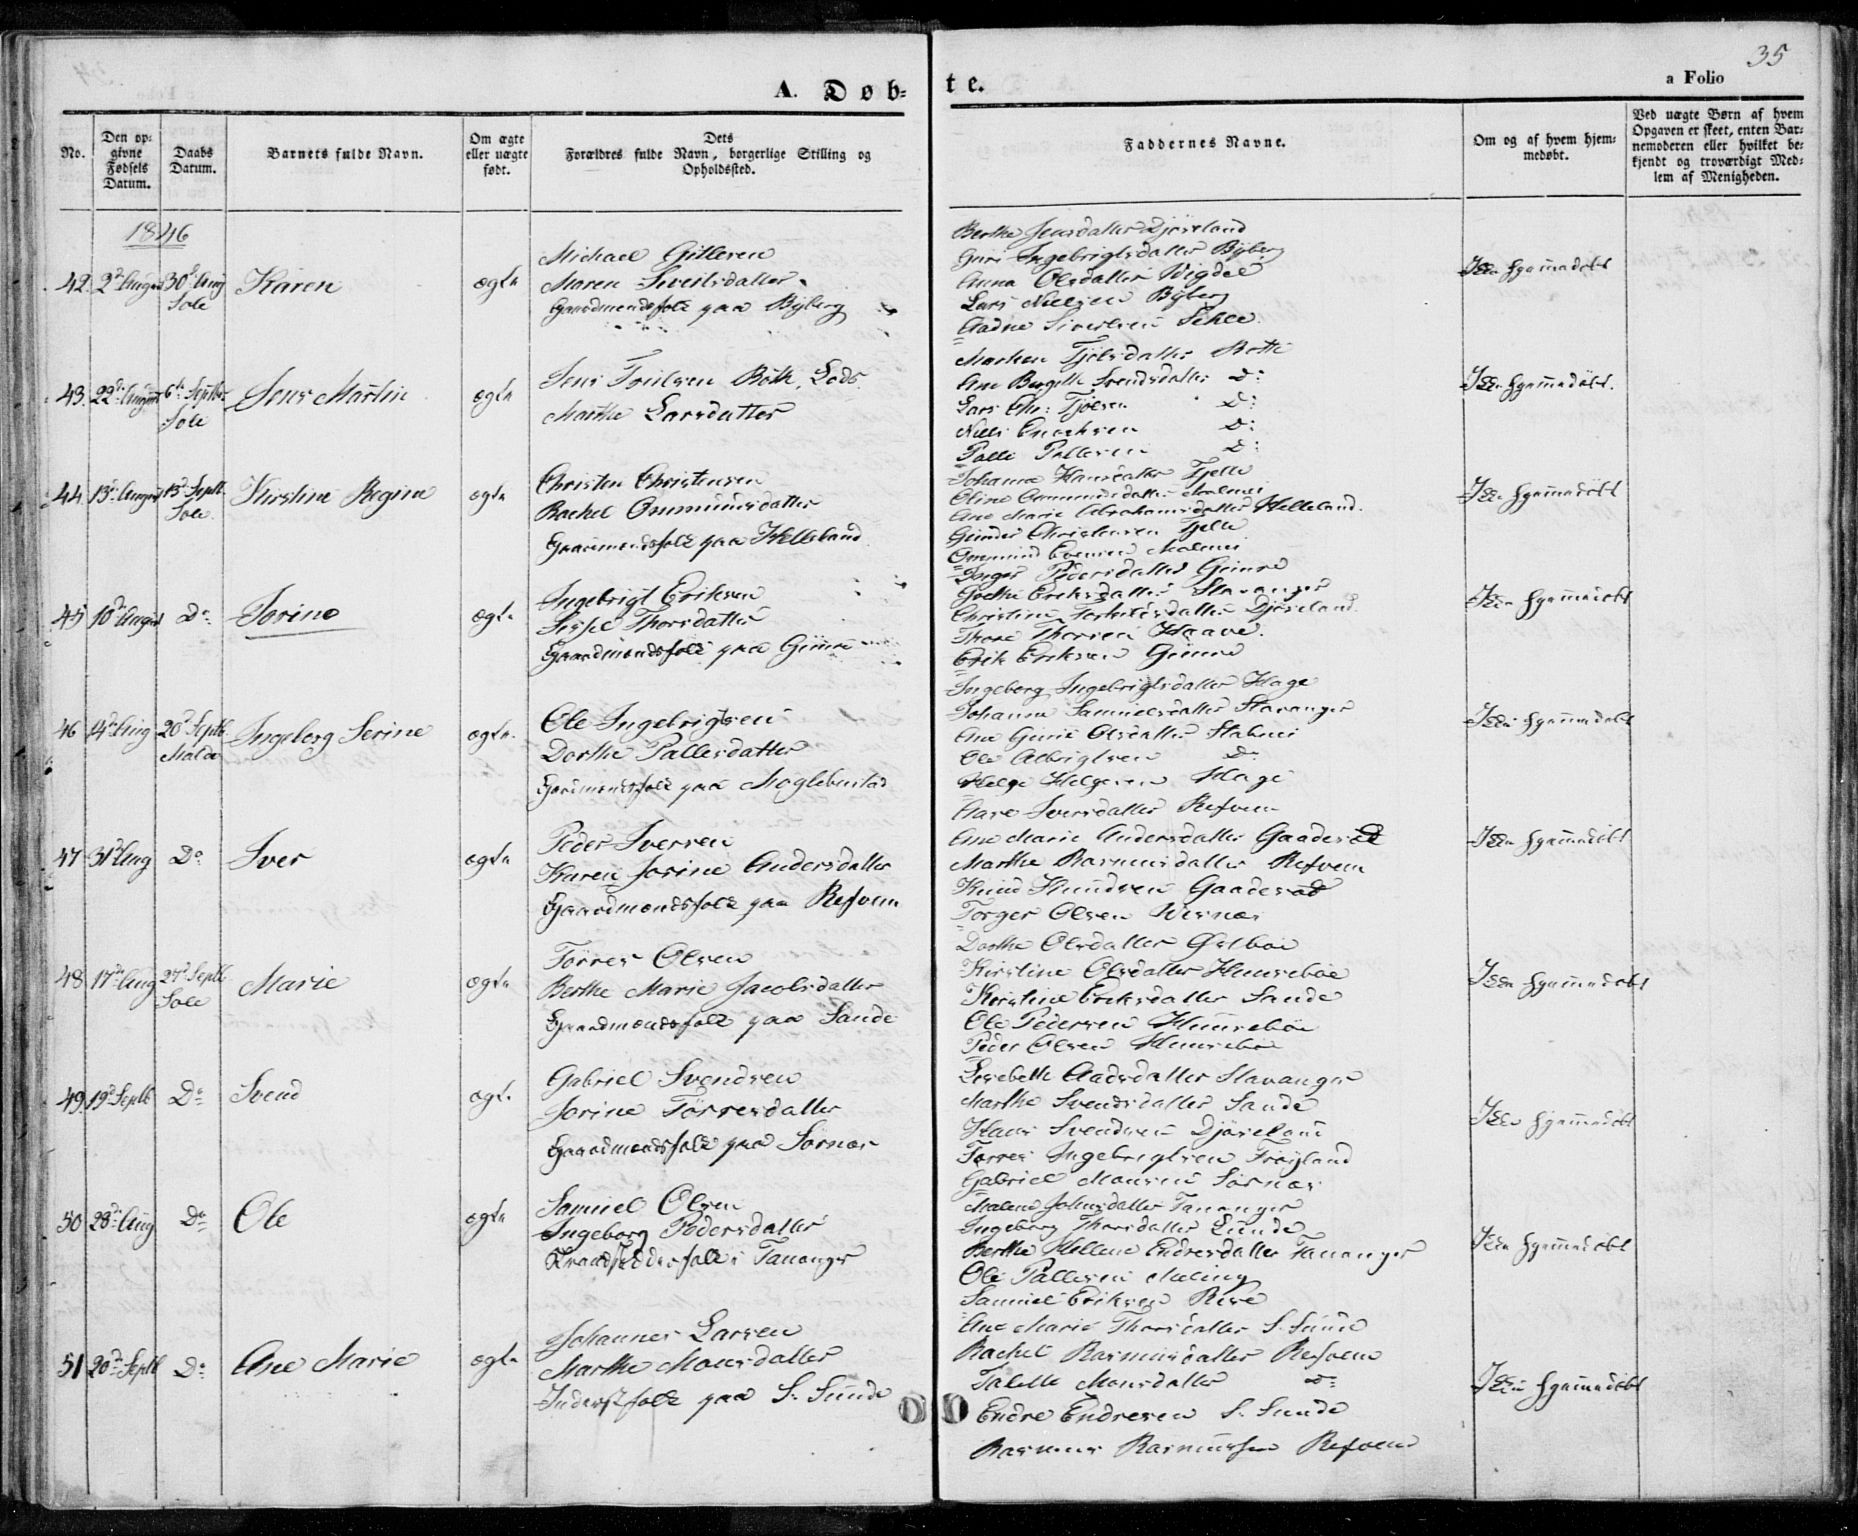 35
A. Døb-
te.
a Folio
No.
Den op-
givne
Fødsels
Datum.
Daabs
Datum.
Barnets fulde Navn.
Om ægte
eller uægte
født.
Dets
Forældres fulde Navn, borgerlige Stilling og
Opholdssted.
Faddernes Navne.
Om og af hvem hjem-
medøbt.
Ved uægte Børn af hvem
Opgaven er skeet, enten Bar-
nemoderen eller hvilket be-
kjendt og troværdigt Med-
lem af Menigheden.
1846
42. 2d August 30te Aug
Sole
Karen
ægte
Michael Gitlesen
Maren Sivertsdatter
Gaardmandsfolk paa Byberg
Berthe Jensdatter Djøseland
Guri Ingebrigtsdatter Byberg
Anna Olsdatter Vigdel
Lars Nielsen Byberg
Aadne Sivertsen Sehlee
Ikke hjemmedøbt
43. 22de August 6te Septbr
Sole
Jens Martin
ægte
Jens Troilsen Roth, Lods
Marthe Larsdatter
Marthen Tjølsdatter Rott
Ane Bergitte Svendsdatter Do
Lars Chr: Tjølsen Do
Niels Enochsen Do
Palle Pallesen Do
Ikke hjemmedøbt.
44. 13de August 13d Septb
Sole.
Kirstine Regine
ægte
Christen Christensen
Rachel Ommundsdatter
Gaardmandsfolk paa Helleland
Johanne Hansdatter Tjelle
Oline Ommundsdatter Malmei
Ane Marie Abrahamsdatter Helleland.
Gunder Christensen Tjelle
Ommund Evensen Malmei
Ikke hjemmedøbt
45 10d August Do
Serine
ægte
Ingebrigt Eriksen
Sissel Thorsdatter
Gaardmandsfolk paa Gimre
Inger Pedersdatter Gimre
Gjethe Eriksdatter Stavanger
Christine Torkelsdatter Djøseland.
Thore Thorsen Haave.
Erik Eriksen Gimre
Ikke hjemmedøbt
46 14de Aug 20d Septb.
Malde
Ingeborg Serine
ægte.
Ole Ingebrigtsen
Dorthe Pallesdatter
Gaardmandsfolk paa Meglebustad
Ingeborg Ingebrigtsdatter Hage
Johanne Samuelsdatter Stavanger
Ane Gurie Olsdatter Stabnei
Ole Albrigtsen Do
Helge Helgesen Hage
Ikke hjemmedøbt
47 31d Aug Do
Iver
ægte
Peder Iversen
Karen Serine Andersdatter
Gaardmandsfolk paa Refvem
Aase Iversdatter Refvem
Ane Marie Andersdatter Gaadesæt
Marthe Rasmusdatter Refvem
Knud Knudsen Gaadesæt
Torger Olsen Visnæs
Ikke hjemmedøbt
48 17de Aug 27d Septb
Sole
Marie
ægte
Tørres Olsen
Berthe Marie Jacobsdatter
Gaardmandsfolk paa Sande
Dorthe Olsdatter Øxeboe
Kirstine Olsdatter Hunseboe
Kirstine Eriksdatter Sande
Ole Pedersen Hunseboe
Peder Olsen Hunseboe
Ikke hjemmedøbt
49. 19d Septb Do
Svend
ægte
Gabriel Svendsen
Serine Tørresdatter
Gaardmandsfolk paa Sørnæs
Lisebeth Aadsdatter Stavanger
Marthe Svendsdatter Sande
Hans Svendsen Djøseland
Tørres Ingebrigtsen Trøyland
Gabriel Monsen Sørnæs
Ikke hjemmedøbt
50 28de Aug Do
Ole
ægte
Samuel Olsen
Ingeborg Pedersdatter
Strandsidderfolk i Tananger
Malene Johnsdatter Tananger
Ingeborg Thorsdatter Lunde
Berthe Hellene Endresdatter Tananger
Ole Pallesen Meling
Samuel Eriksen Risé
Ikke hjemmedøbt
51 20d Septb Do
Ane Marie
ægte
Johannes Larsen
Marthe Monsdatter
Inderstfolk paa S. Sunde
Ane Marie Thorsdatter S. Sunde
Rachel Rasmusdatter Refvem
Tabelle Monsdatter Do
Endre Endresen S. Sunde
Rasmus Rasmussen Refvem
Ikke hjemmedøbt